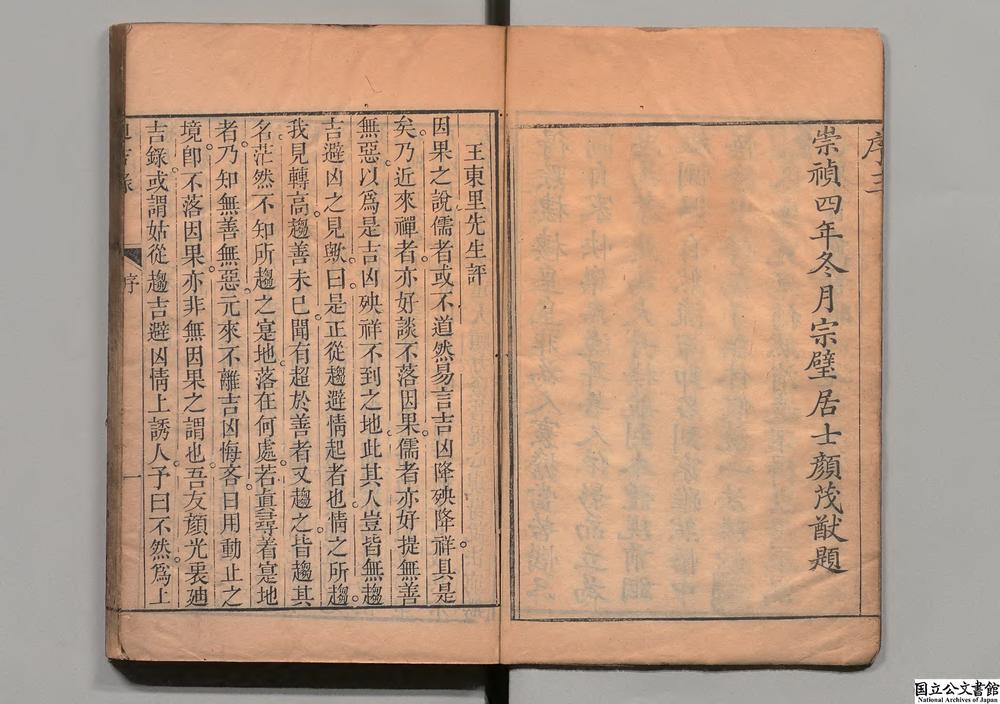 序三
崇禎四年冬月宗璧居士顏茂猷題
王東里先生評
因果之說儒者或不道然易言吉凶降殃降祥具是
矣乃近來禪者亦好談不落因果儒者亦好提無善
無惡以爲是吉凶殃祥不到之地此其人豈皆無趨
吉避凶之見歟曰是正從趨避情起者也情之所趨
我見轉高趨善未已聞有超於善者又趨之皆趨其
名茫然不知所趨之寔地落在何處若眞尋着寔地
者乃知無善無惡元來不離吉凶悔吝日用動止之
境卽不落因果亦非無因果之謂也吾友顏光衷廸
吉錄或謂姑從趨吉避凶情上誘人予曰不然爲上
序
一
国立公文書館
National Archives of Japan